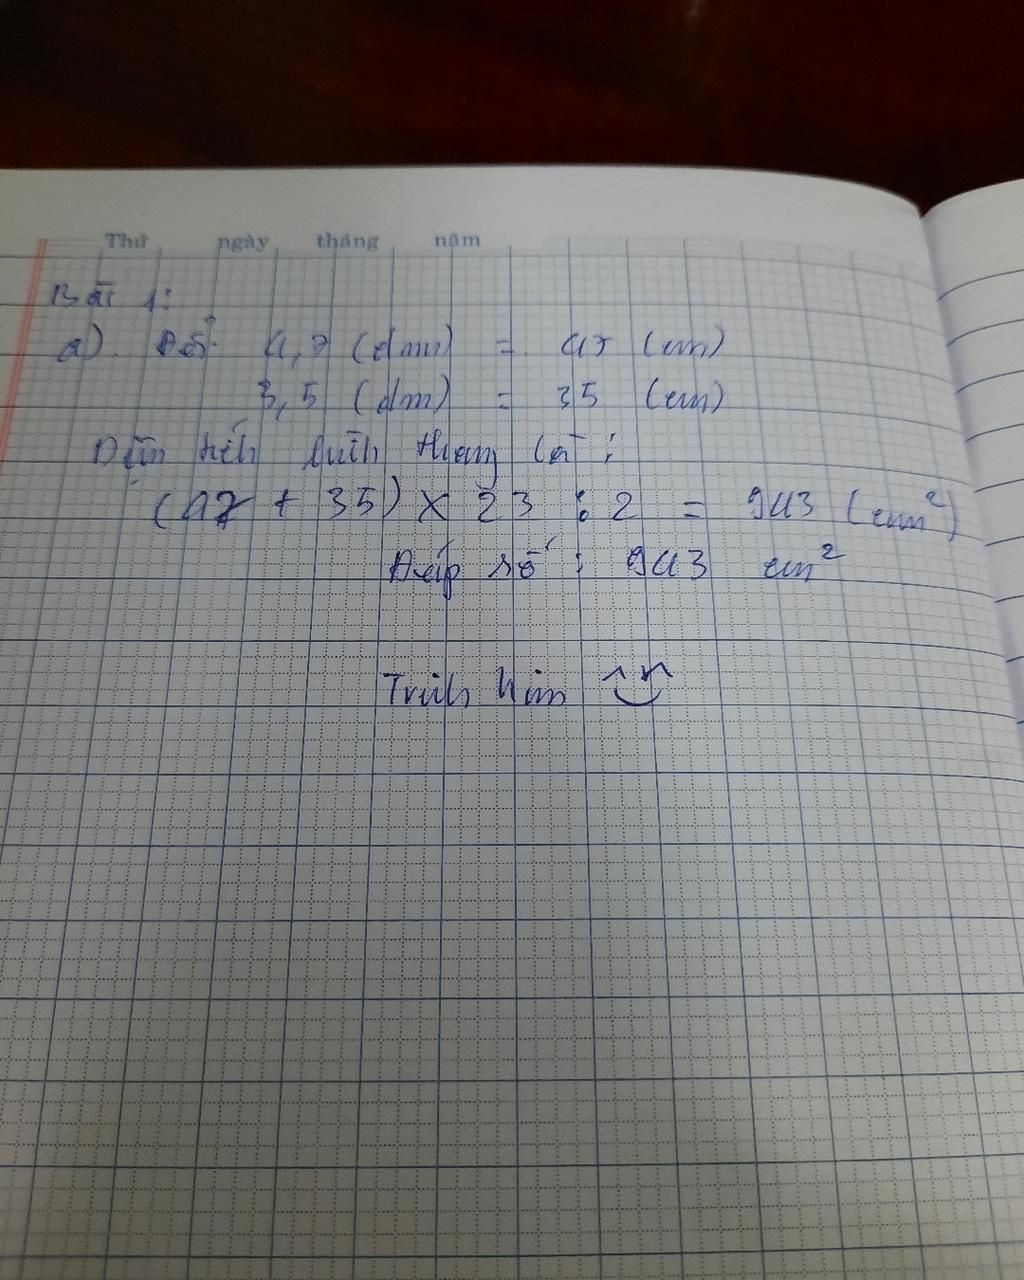 Thứ ngày tháng năm
Bài 1:
a) Đổi 4,7 (dm) = 47 (cm)
3,5 (dm) = 35 (cm)
Diện tích hình thang là :
(47 + 35) x 23 : 2 = 943 (cm²)
Đáp số : 943 cm²
Trình